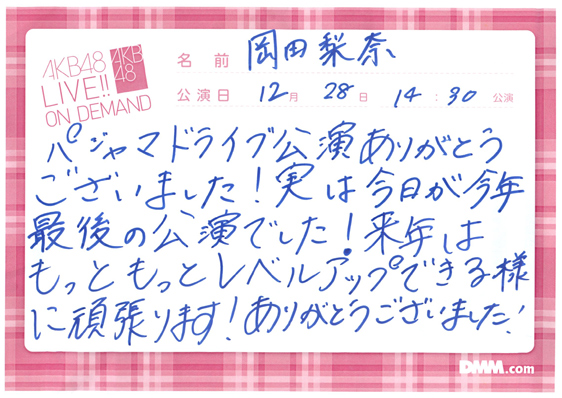 AKB48
LIVE!!
ON DEMAND
AKB
48
名前 岡田梨奈
公演日 12月 28日 14:30 公演
パジャマドライブ公演ありがとう
ございました!実は今日が今年
最後の公演でした!来年は
もっともっとレベルアップできる様
に頑張ります!ありがとうございました!
DMM.com